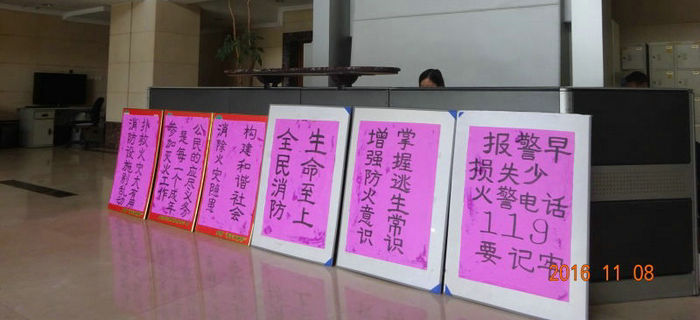 扑救火灾大有用
消防设施别乱动
公民的应尽义务
是每一个成年
参加灭火工作
构建和谐社会
消除火灾隐患
生命至上
全民消防
掌握逃生常识
增强防火意识
报警早
损失少
火警电话
119
要记牢
2016 11 08